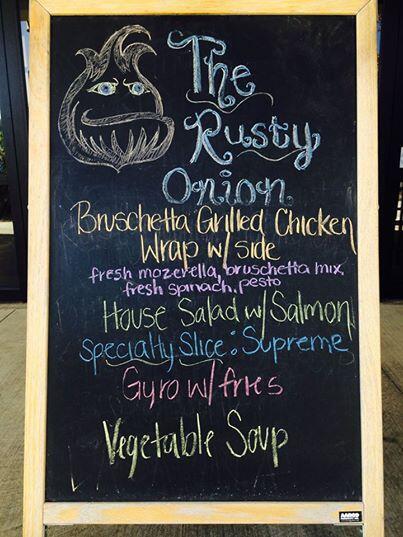 The
Rusty
Onion
Bruschetta Grilled Chicken
Wrap w/ side
fresh mozerella, bruschetta mix,
fresh spinach, pesto
House Salad w/ Salmon
Specialty Slice: Supreme
Gyro w/ fries
Vegetable Soup